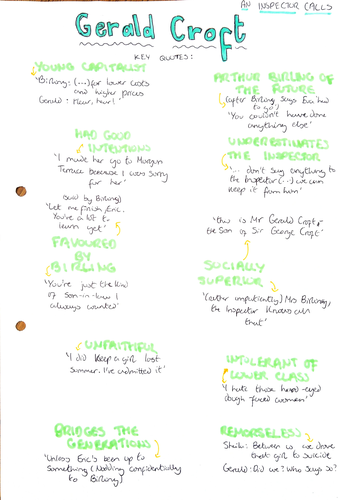 AN INSPECTOR CALLS
Gerald Croft
KEY QUOTES:
YOUNG CAPITALIST
'Birling: (...) for lower costs
and higher prices
Gerald: Hear, hear!'
HAD GOOD
INTENTIONS
'I made her go to Morgan
Terrace because I was sorry
for her'
(said by Birling)
'Let me finish, Eric.
You've a lot to
learn yet'
FAVOURED
BY
BIRLING
'You're just the kind
of son-in-law I
always wanted'
UNFAITHFUL
'I did keep a girl last
summer. I've admitted it'
BRIDGES THE
GENERATIONS
'Unless Eric's been up to
something (Nodding confidentially
to Birling)'
ARTHUR BIRLING OF
THE FUTURE
(after Birling says he had
to go)
'You couldn't have done
anything else'
UNDERESTIMATES
THE INSPECTOR
'... don't say anything to
the Inspector (...) we can
keep it from him'
'this is Mr Gerald Croft,
the son of Sir George Croft'
SOCIALLY
SUPERIOR
'(rather impatiently) Mrs Birling,
the Inspector knows all
that'
INTOLERANT OF
LOWER CLASS
'I hate those hard-eyed
dough faced women'
REMORSELESS
Sheila: Between us we drove
that girl to suicide
Gerald: Did we? Who says so?